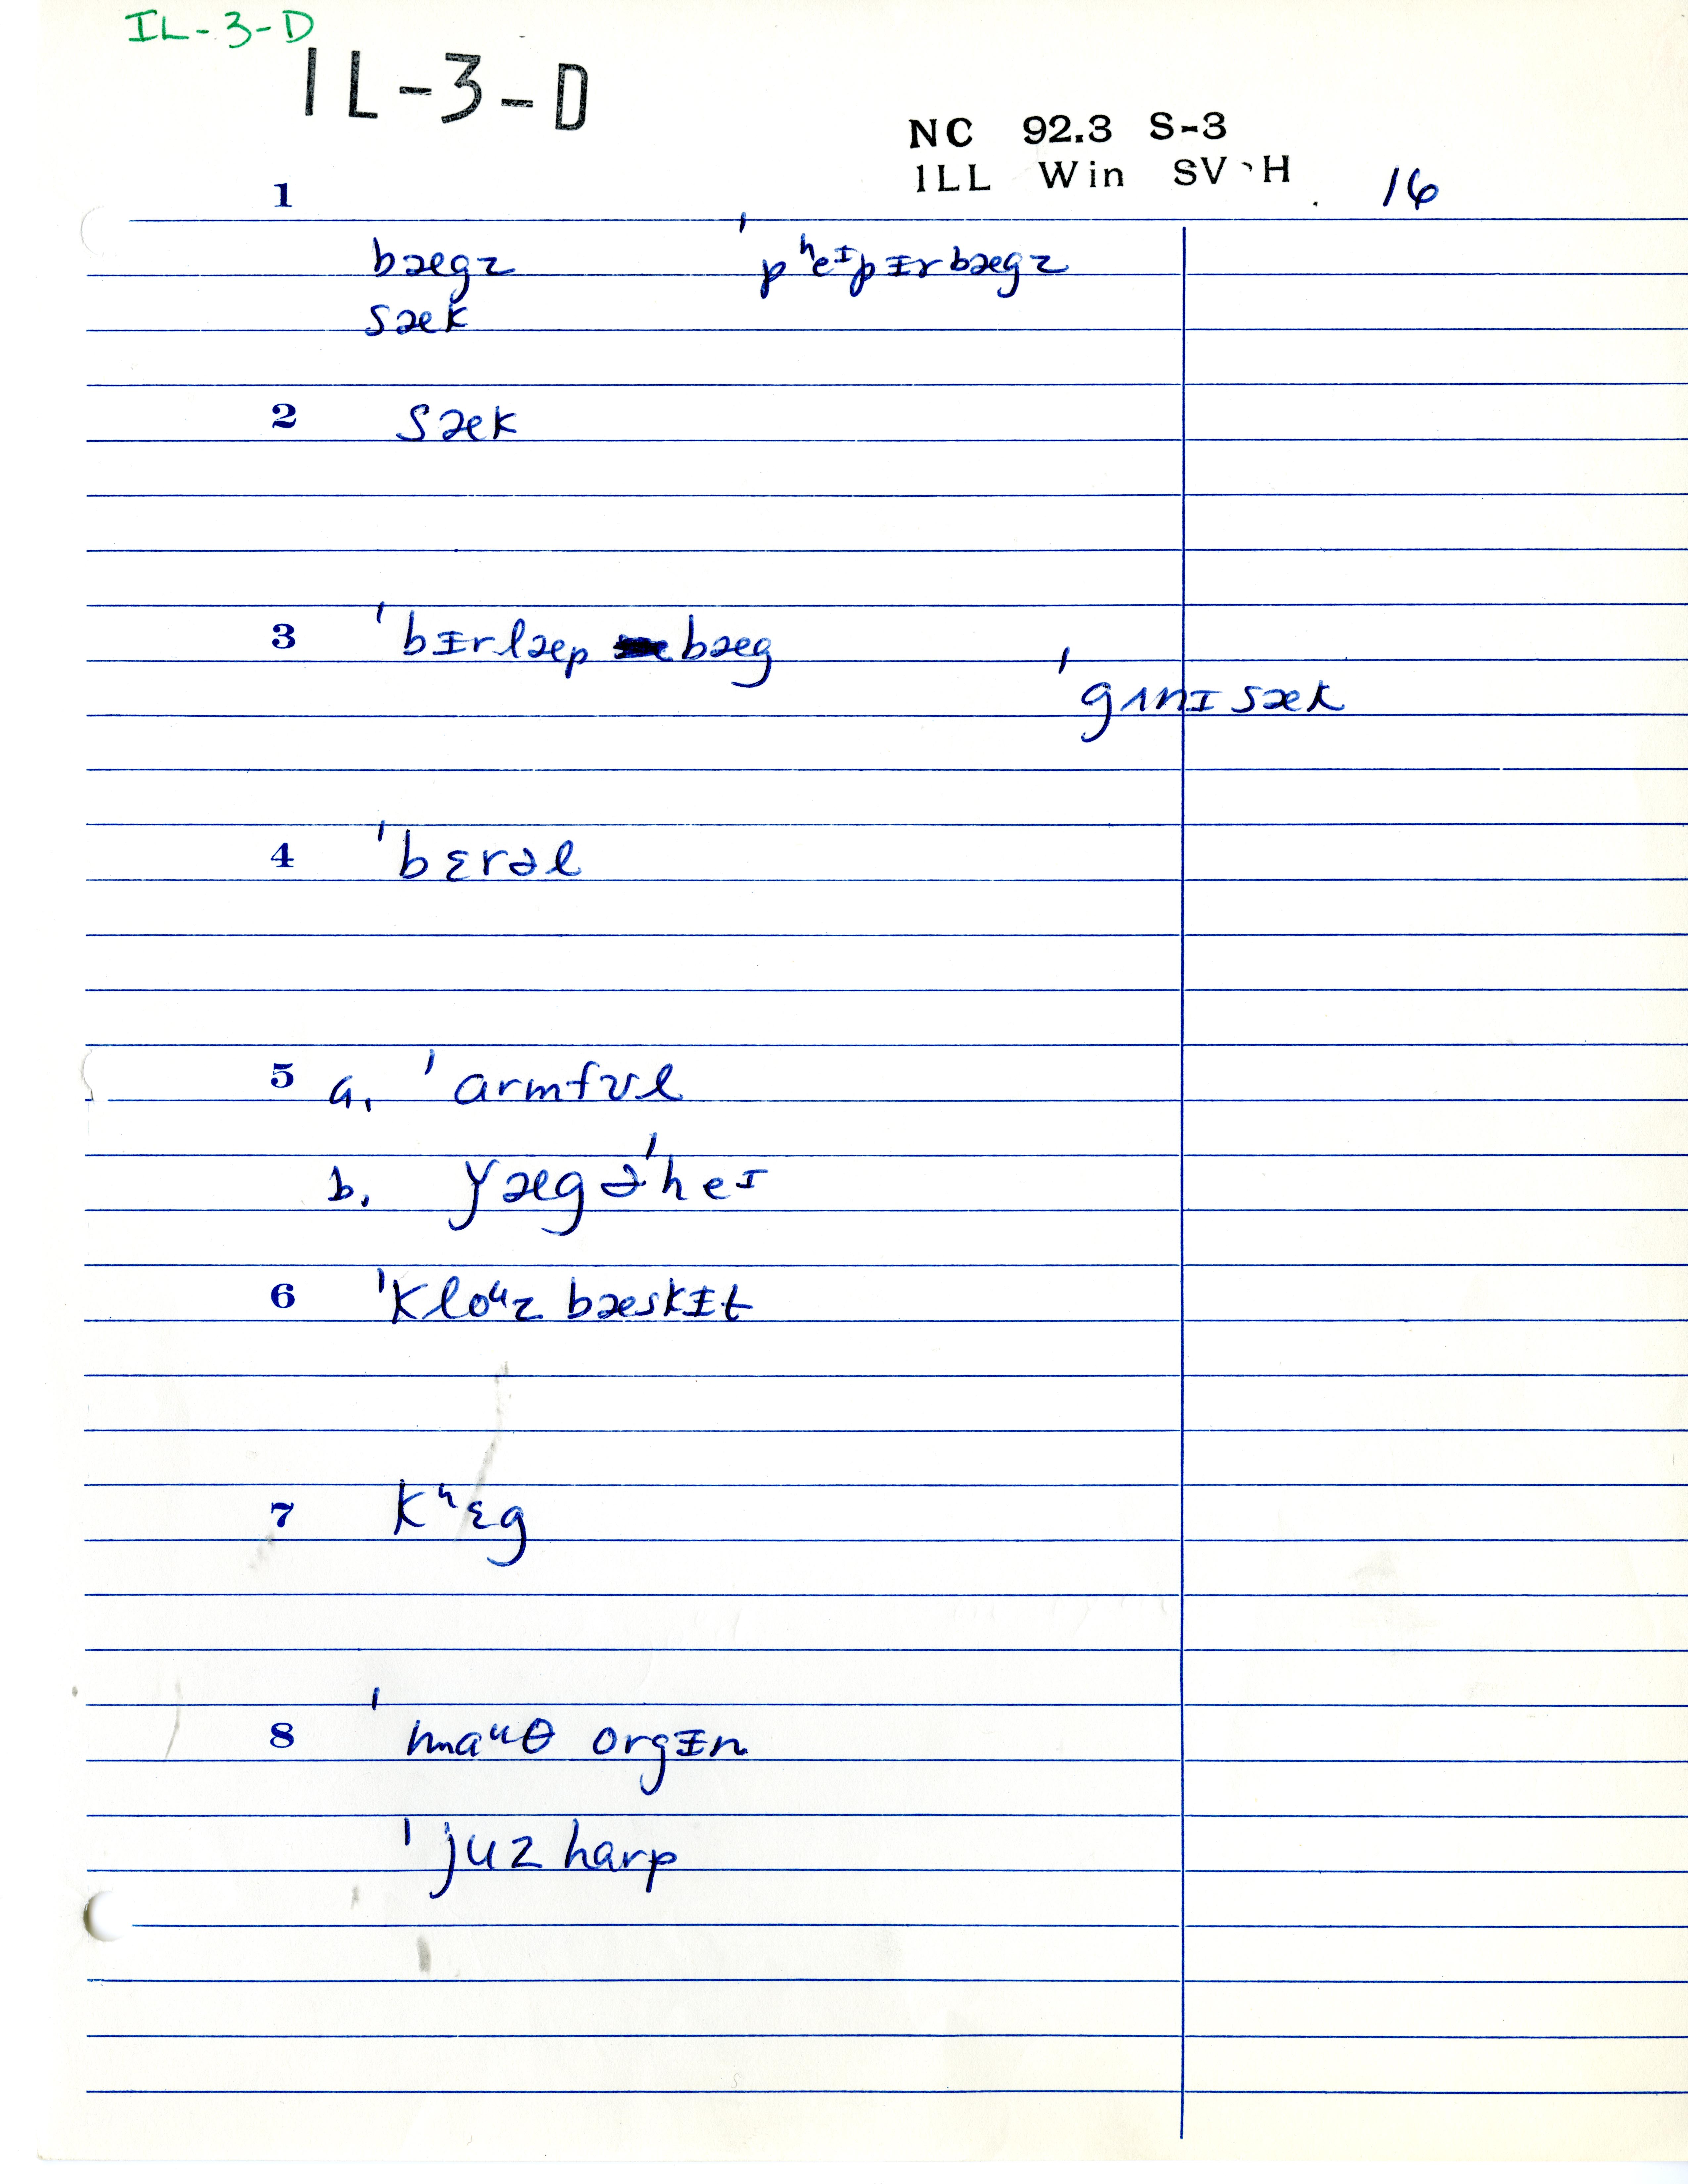 IL-3-D
IL-3-D
NC 92.3 S-3
ILL Win SV H 16
1
bægz ˈpʰeᴵpᵻrbægz
sæk
2 sæk
3 ˈbᵻrlæp bæg
ˈgʌnɪ sæk
4 ˈbɛrəl
5 a. ˈarmfʊl
b. yægəˈheᴵ
6 ˈkloᵘz bæskᵻt
7 kʰɛg
8 ˈmaᵘθ orgᵻn
ˈjuz harp